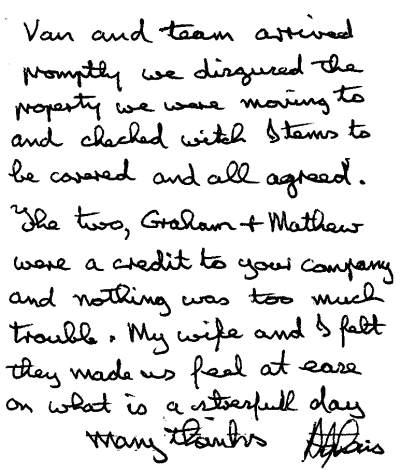 Van and team arrived
promptly we disgused the
property we were moving to
and checked witch Items to
be covered and all agreed.
The two, Graham + Mathew
were a credit to your company
and nothing was too much
trouble. My wife and I felt
they made us feel at ease
on what is a stressfull day
Many thanks